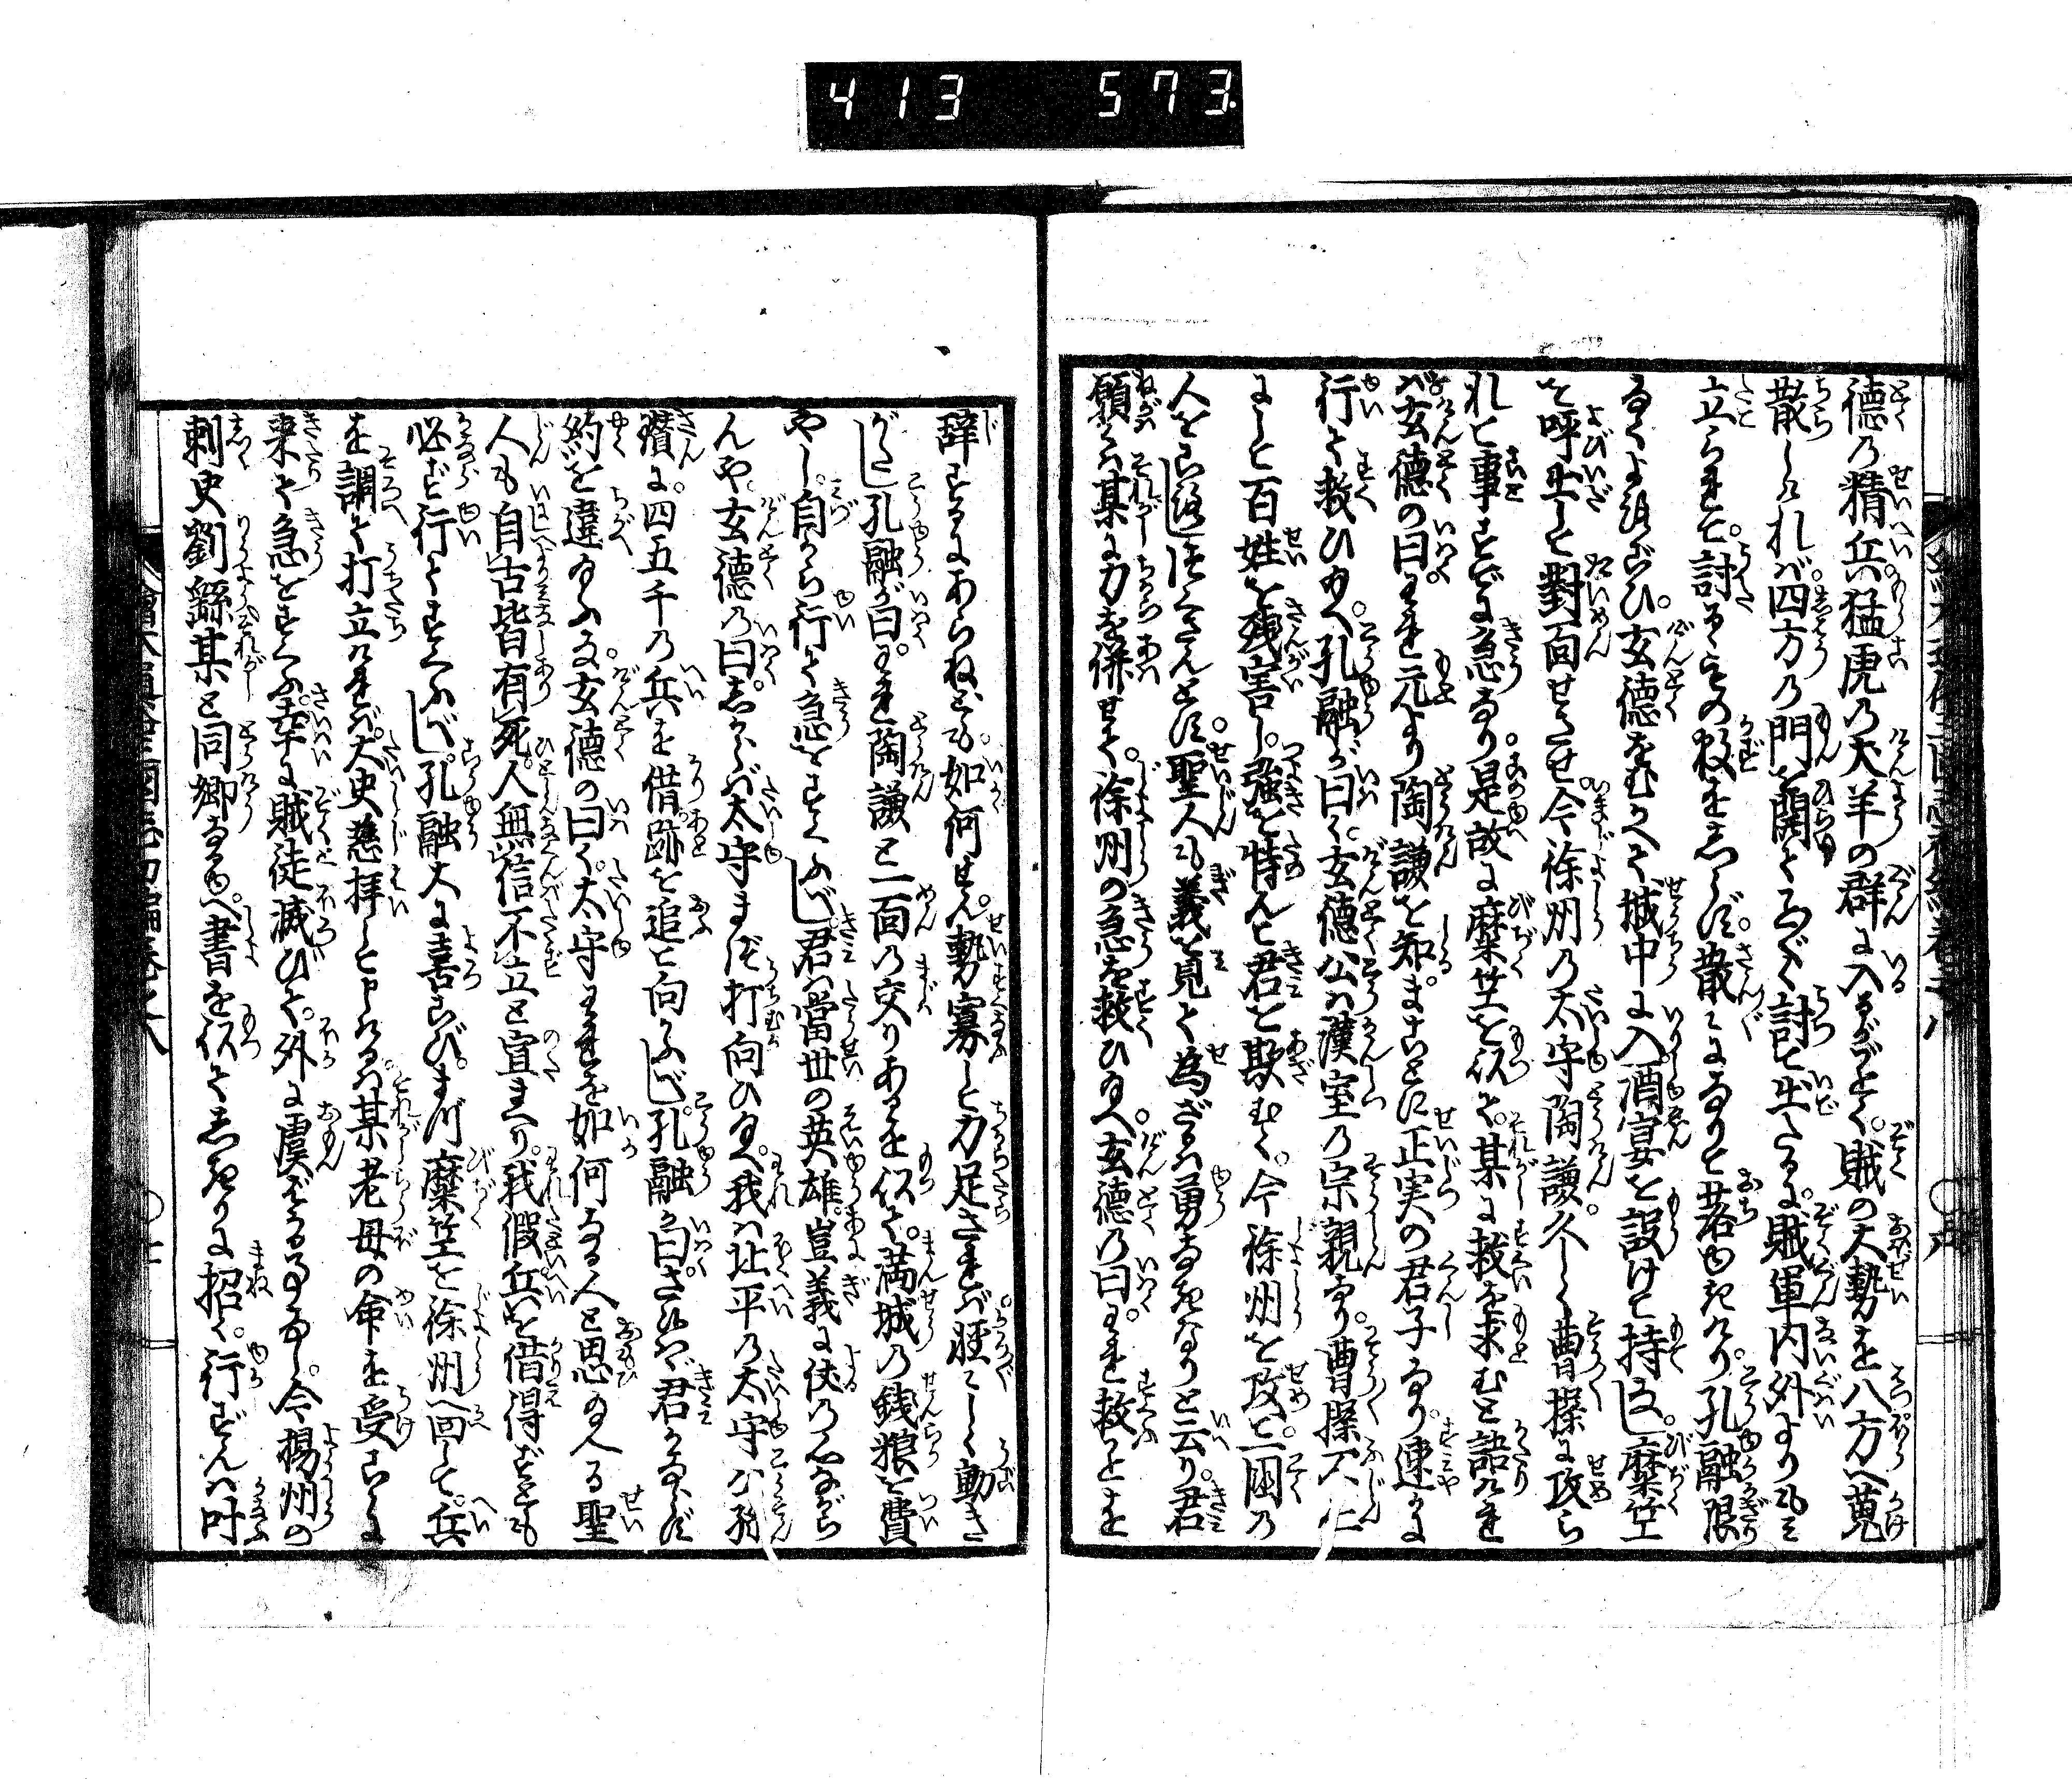 413 573
徳の精兵。猛虎の犬羊の群に入るがごとく。賊の大勢を八方へ蒐
散しければ。四方の門を開てふせぐ討て出たるに。賊軍内外よりもミ
立られて。討るゝもの数をしらず。散々になりて落ゆきけり。孔融限
なくよろこび。玄徳をむかへて城中に入。酒宴を設けて持なし。糜竺
を呼出して對面せさせ。今徐州の太守陶謙。久しく曹操に攻ら
れて事すでに急なり。是故に糜竺を以て。某に救を求むと語れけれ
ば。玄徳の曰。われ元より陶謙を知。まことに正実の君子なり。速かに
行て救ひ玉へ。孔融が曰く。玄徳公ハ漢室の宗親なり。曹操不仁
にして百姓を残害し。強を恃んで君を欺むく。今徐州を攻て。一国の
人をころしつくさんとす。聖人も義を見て為ざるハ勇なきなりと云り。君
願くハ某に力を併せて。徐州の急を救ひ玉へ。玄徳の曰。われ救ことを
辞するにあらねども。如何せん。勢寡して力足ざれば。軽々しく動き
がたし。孔融が曰。われ陶謙と一面の交りあるを以て。満城の銭粮を費
やし。自から行て急をすくふべし。君ハ當世の英雄。豈義に仗の心なから
んや。玄徳の曰。しからば太守まづ打向ひ玉へ。我ハ北平の太守公孫
瓚に。四五千の兵を借。跡を追て向ふべし。孔融が曰。さらば君かならず
約を違玉ふな。玄徳の曰く。太守われを如何なる人と思玉へる。聖
人も自古皆有死。人無信不立と宣まへり。我假兵を借得ずとも
必ず行てすくふべし。孔融大に喜こび。まづ糜竺を徐州へ回して。兵
を調て打立ければ。大史慈拝して申けるハ。某老母の命を受こゝに
来て急をすくふ。幸に賊徒滅びて。外に虞べる事なし。今揚州の
刺史劉繇某と同郷なるゆへ。書を以てしきりに招く。行ずんハ叶